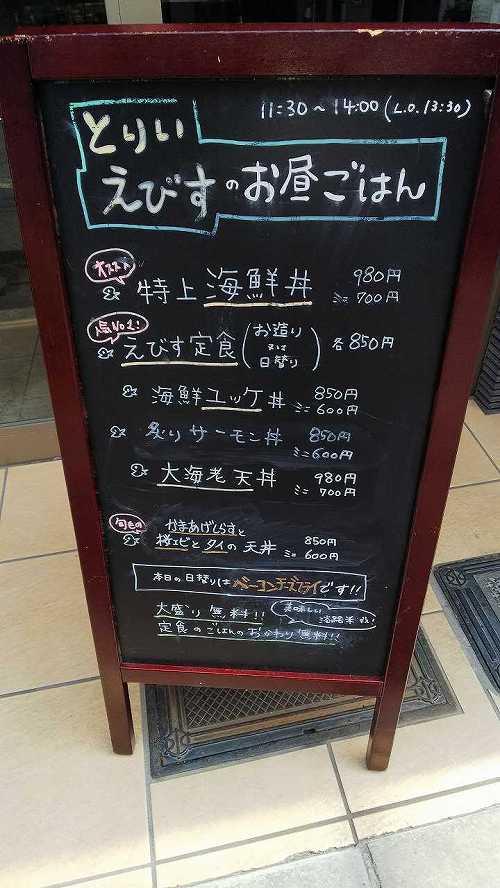 11:30～14:00(L.O.13:30)
とりい
えびすのお昼ごはん
オススメ
特上海鮮丼 980円
ミニ 700円
人気No.1!
えびす定食(お造り又は日替り) 各850円
海鮮ユッケ丼 850円
ミニ 600円
炙りサーモン丼 850円
ミニ 600円
大海老天丼 980円
ミニ 700円
旬もの
かまあげしらすと
桜エビとタイの天丼 850円
ミニ 600円
本日の日替りは ベーコンチーズフライです!!
大盛り無料!! 美味しい
淡路米 ね!
定食のごはんのおかわり無料!!